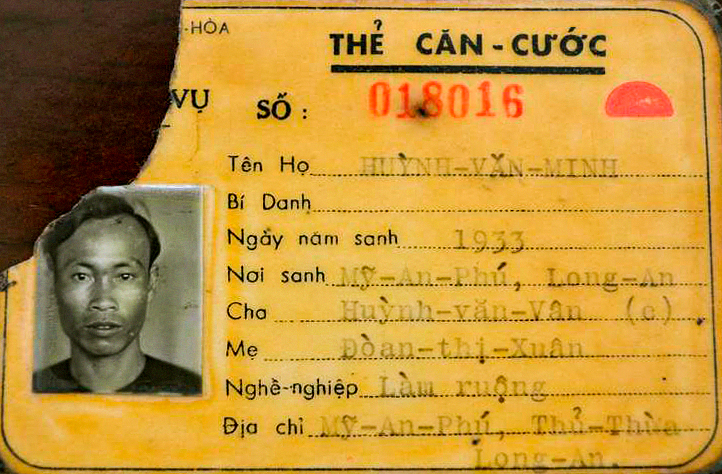 -HÒA
THẺ CĂN-CƯỚC
VỤ
SỐ : 018016
Tên Họ HUỲNH-VĂN-MINH
Bí Danh
Ngày năm sanh 1933
Nơi sanh Mỹ-An-Phú, Long-An
Cha Huỳnh-văn-Vân (c)
Mẹ Đoàn-thị-Xuân
Nghề-nghiệp Làm ruộng
Địa chỉ Mỹ-An-Phú, Thủ-Thừa
Long-An.